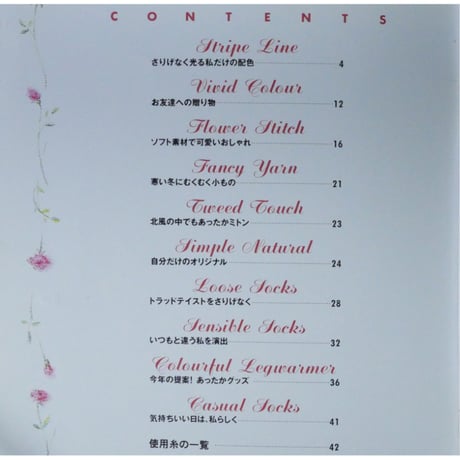 CONTENTS
Stripe Line
さりげなく光る私だけの配色 4
Vivid Colour
お友達への贈り物 12
Flower Stitch
ソフト素材で可愛いおしゃれ 16
Fancy Yarn
寒い冬にむくむく小もの 21
Tweed Touch
北風の中でもあったかミトン 23
Simple Natural
自分だけのオリジナル 24
Loose Socks
トラッドテイストをさりげなく 28
Sensible Socks
いつもと違う私を演出 32
Colourful Legwarmer
今年の提案!あったかグッズ 36
Casual Socks
気持ちいい日は、私らしく 41
使用糸の一覧 42